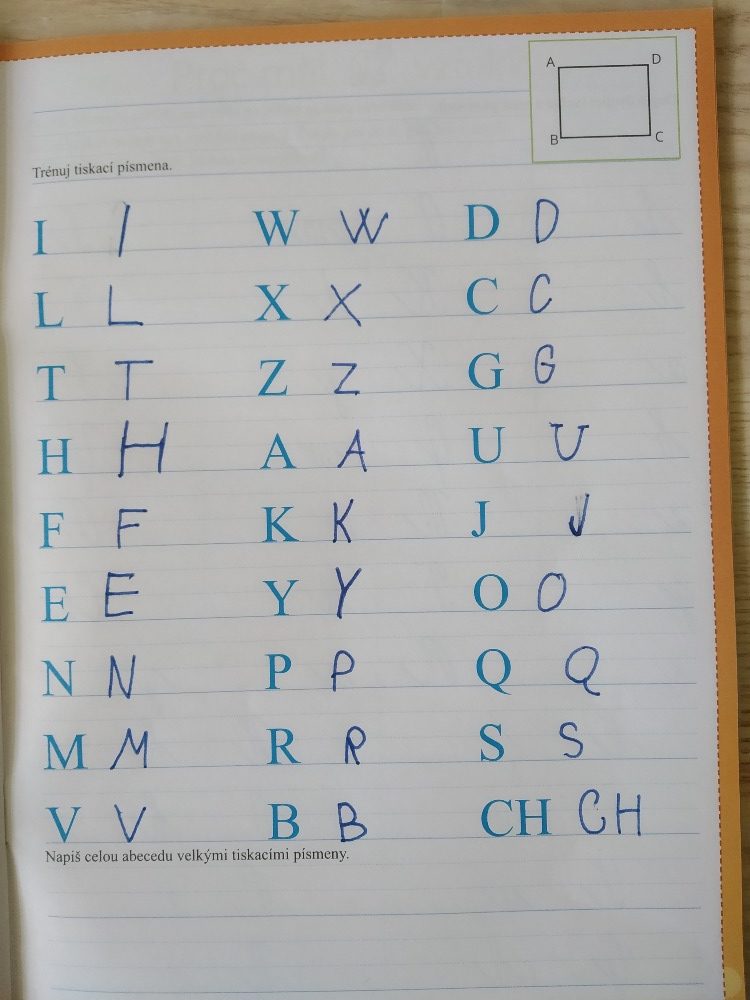 A D
B C
Trénuj tiskací písmena.
I I W W D D
L L X X C C
T T Z Z G G
H H A A U U
F F K K J J
E E Y Y O O
N N P P Q Q
M M R R S S
V V B B CH CH
Napiš celou abecedu velkými tiskacími písmeny.